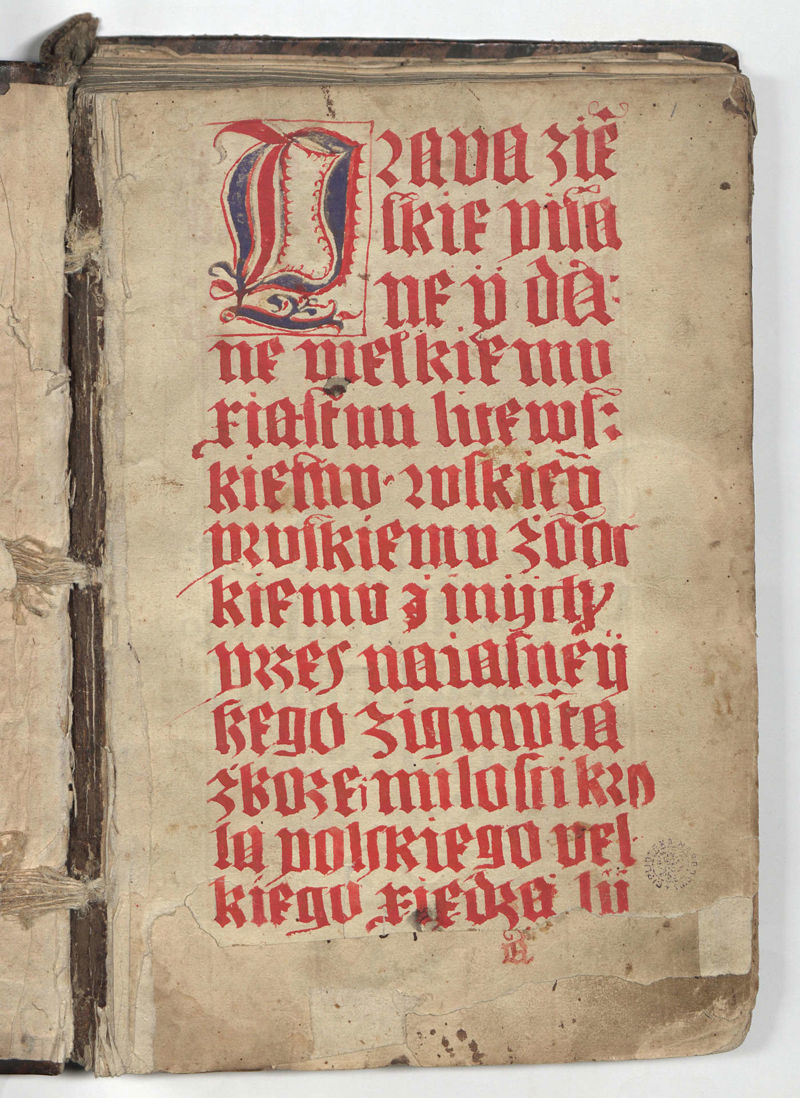 Prava ziē
ſkie piſa
ne ÿ da:
ne vielkiemu
xiąſtuu litewſ:
kiemu ruſkieū
pruſkiemu żōoi
kiemu j inijch
przes naiaſneÿ
ſzego Zigmūta
zboże milosci kro
la polſkiego vel
kiego xiedza lii